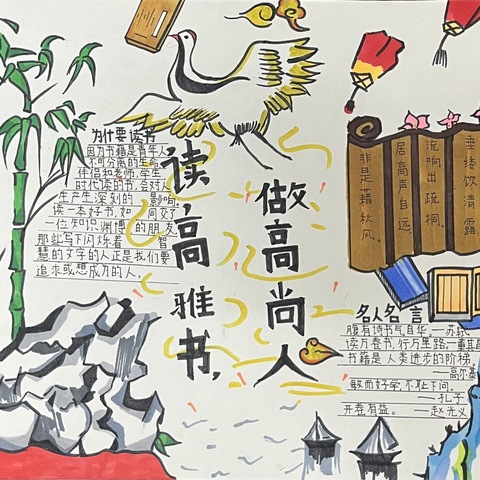 读,高雅书,
做高尚人
为什要读书
因为书籍是青年人
不可分离的生命
伴侣和老师,学生
时代读的书,会对人
生产生深刻的影响
读一本好书,如同交了
一位知识渊博的朋友
那些写下闪烁着智
慧的文字的人正是我们要
追求或想成为的人。
垂缕饮清露
流响出疏桐。
居高声自远
非是藉秋风。
名人名言
腹有诗书气自华。—苏轼
读万卷书,行万里路—董其昌
书籍是人类进步的阶梯,
——高尔基
敏而好学,不耻下问。
——孔子
开卷有益。——赵光义